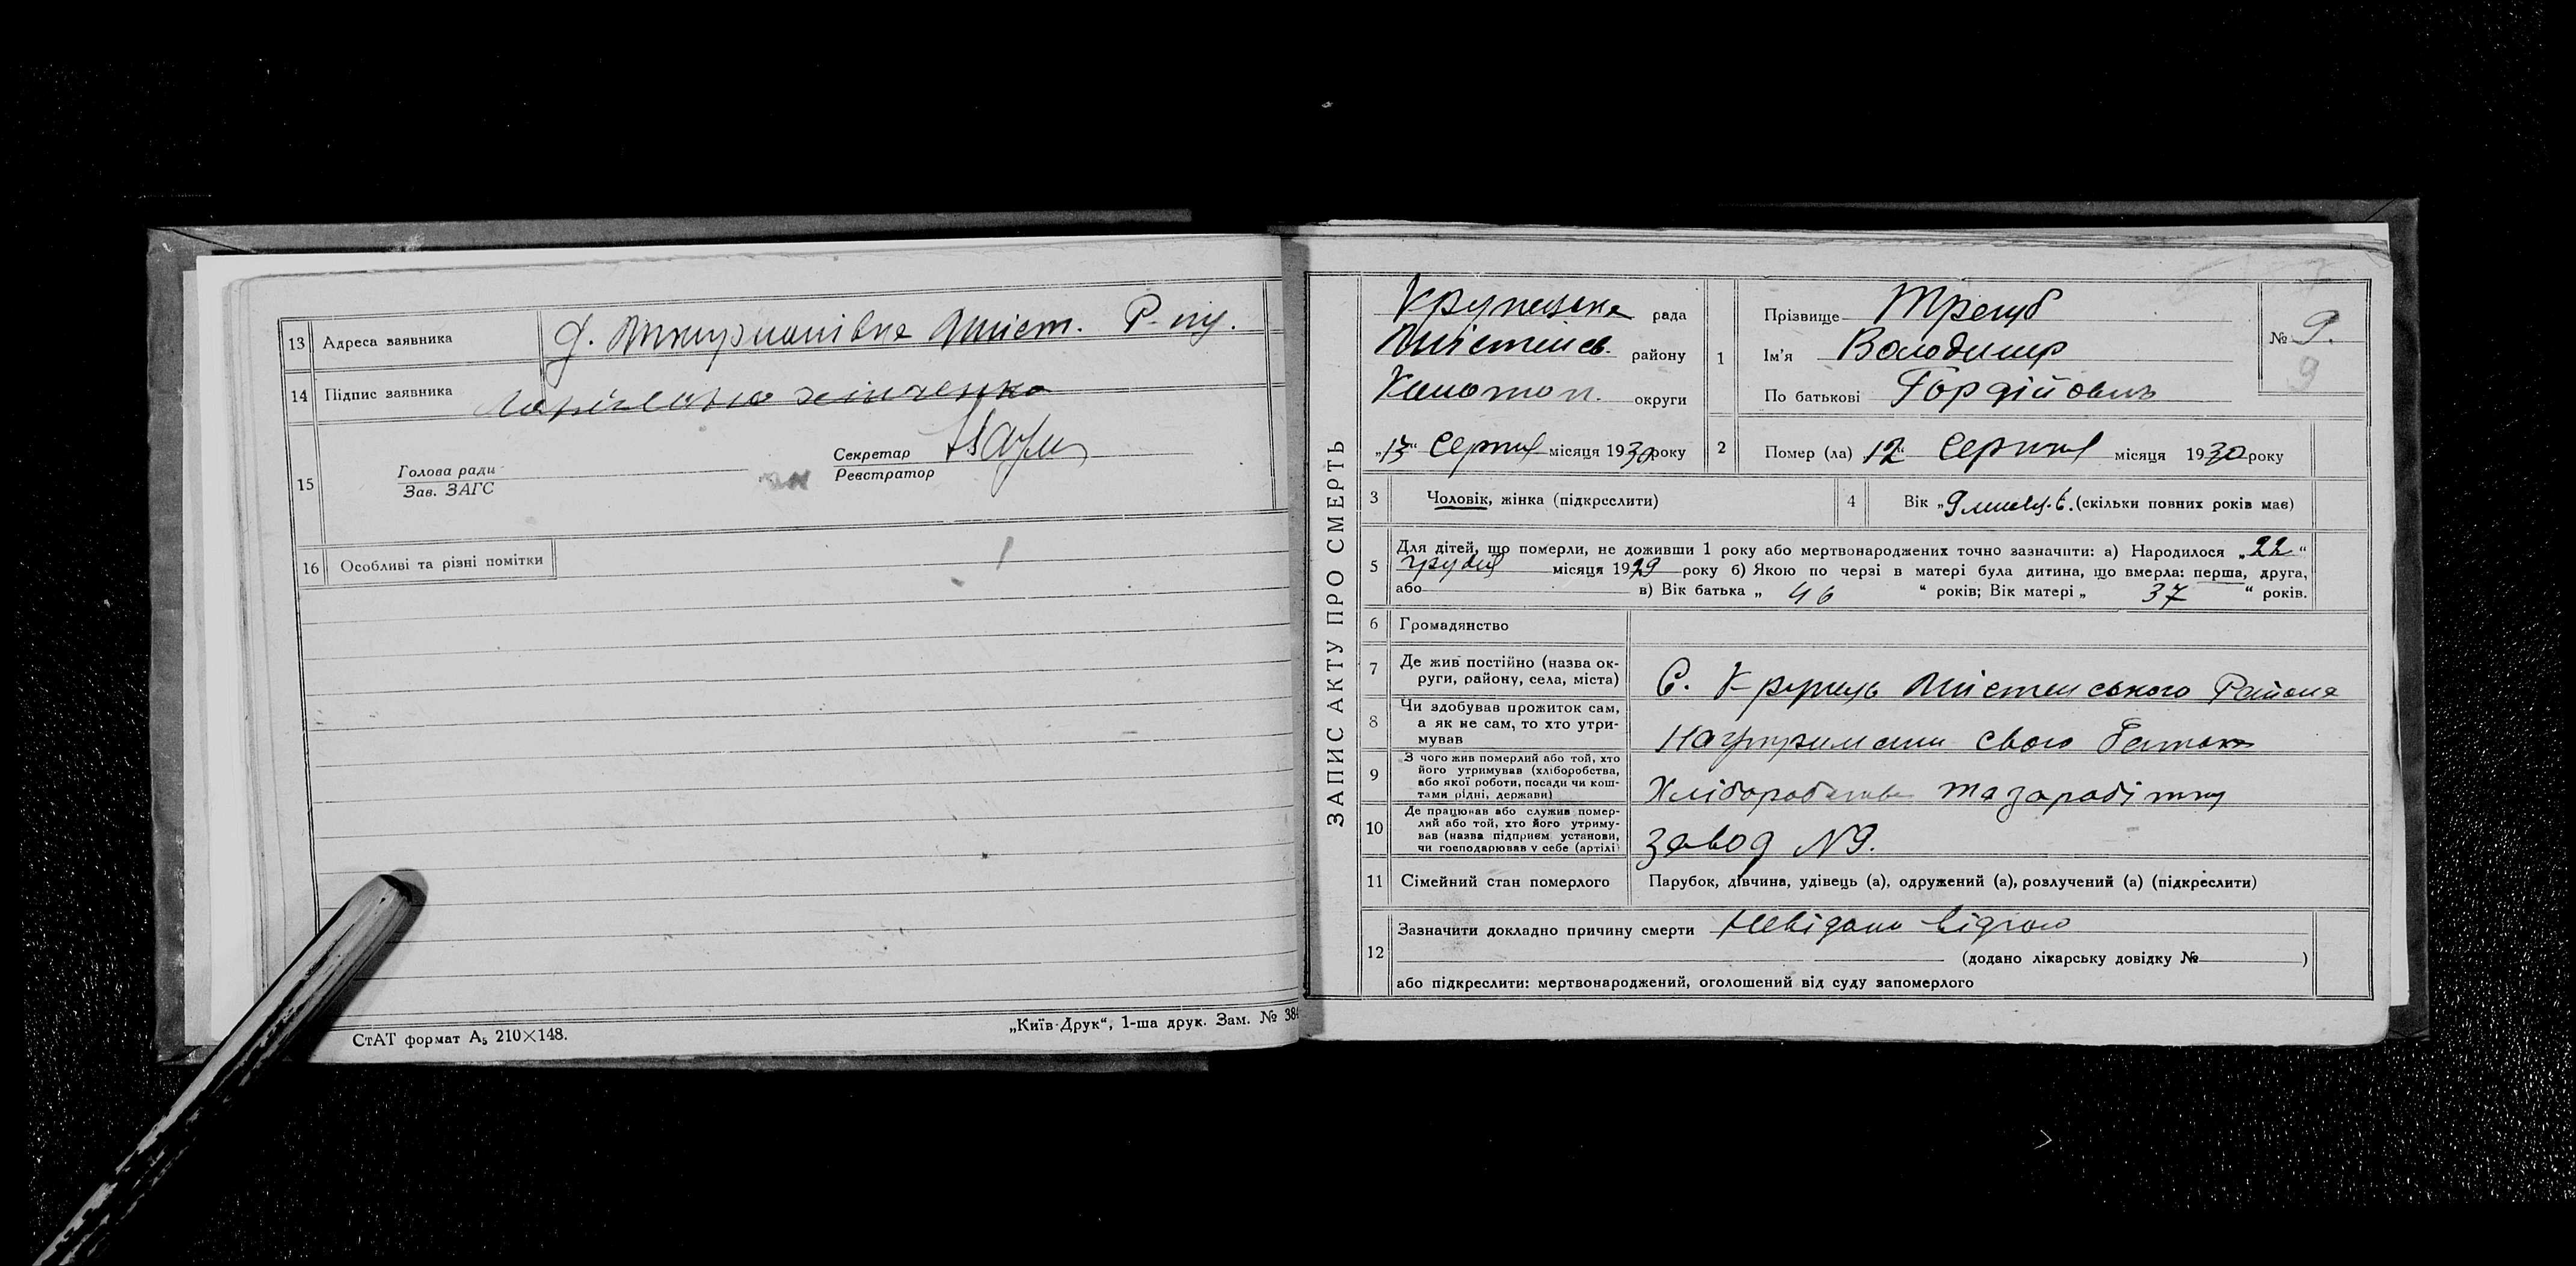 13 Адреса заявника Р-ну.
14 Підпис заявника
15 Голова ради Секретар
Зав. ЗАГС Реєстратор
16 Особливі та різні помітки
СтАТ формат А₅ 210×148.
„Київ-Друк“, 1-ша друк. Зам. № 38
ЗАПИС АКТУ ПРО СМЕРТЬ
Крупецька рада
району
Конотоп. округи
„13“ Серпня місяця 1930 року
1 Прізвище Трегуб
Ім'я Володимир
По батькові Гордійович
№ 9.
9
2 Помер (ла) 12 Серпня місяця 1930 року
3 Чоловік, жінка (підкреслити)
4 Вік „9 (скільки повних років має)
5 Для дітей, що померли, не доживши 1 року або мертвонароджених точно зазначити: а) Народилося „22“
Грудня місяця 1929 року б) Якою по черзі в матері була дитина, що вмерла: перша, друга,
або в) Вік батька „ 46 “ років; Вік матері „ 37 “ років.
6 Громадянство
7 Де жив постійно (назва ок-
руги, району, села, міста)
С. Крупець Района
8 Чи здобував прожиток сам,
а як не сам, то хто утри-
мував
На утриманні свого батька
9 З чого жив померлий або той, хто
його утримував (хліборобства,
або якої роботи, посади чи кош-
тами рідні, держави)
Хліборобства та заробітку
10 Де працював або служив помер-
лий або той, хто його утриму-
вав (назва підприєм установи,
чи господарював у себе (артілі)
Завод №9.
11 Сімейний стан померлого Парубок, дівчина, удівець (а), одружений (а), розлучений (а) (підкреслити)
12 Зазначити докладно причину смерти Невідомо відчого
(додано лікарську довідку № )
або підкреслити: мертвонароджений, оголошений від суду запомерлого